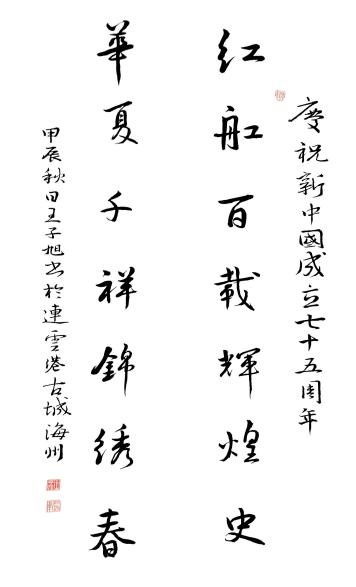 慶祝新中國成立七十五周年
红舡百載輝煌史
華夏千祥錦绣春
甲辰秋日王子旭书於連雲港古城海州